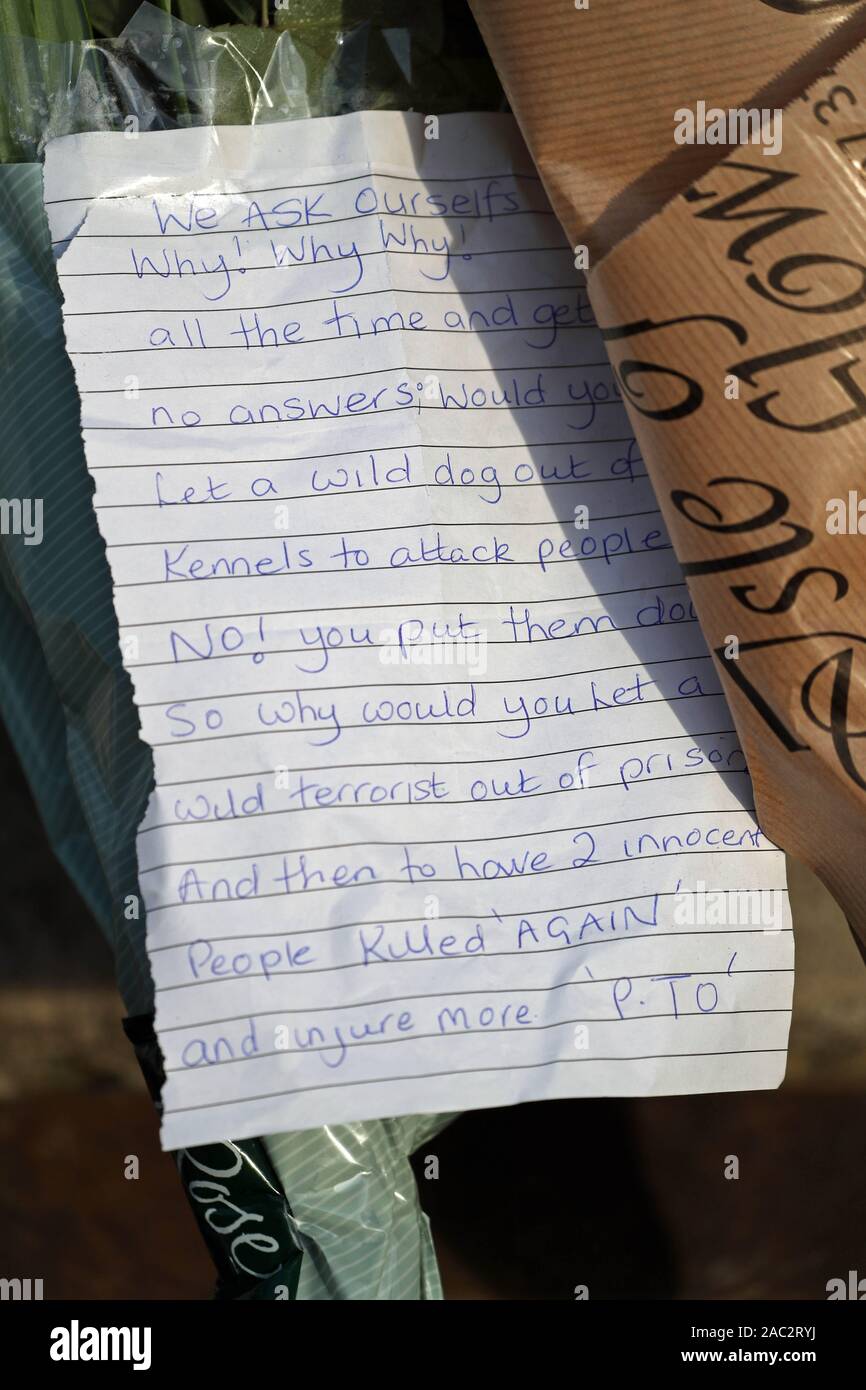 We ASK Ourselfs
Why! Why Why!
all the time and get
no answers; Would you
Let a wild dog out of
Kennels to attack people
NO! you put them
So why would you Let a
wild terrorist out of prison
And then to have 2 innocent
People Killed 'AGAIN'
and injure more. 'P.TO'
Rose
Flow
alamy
Image ID: 2AC2RYJ
www.alamy.com